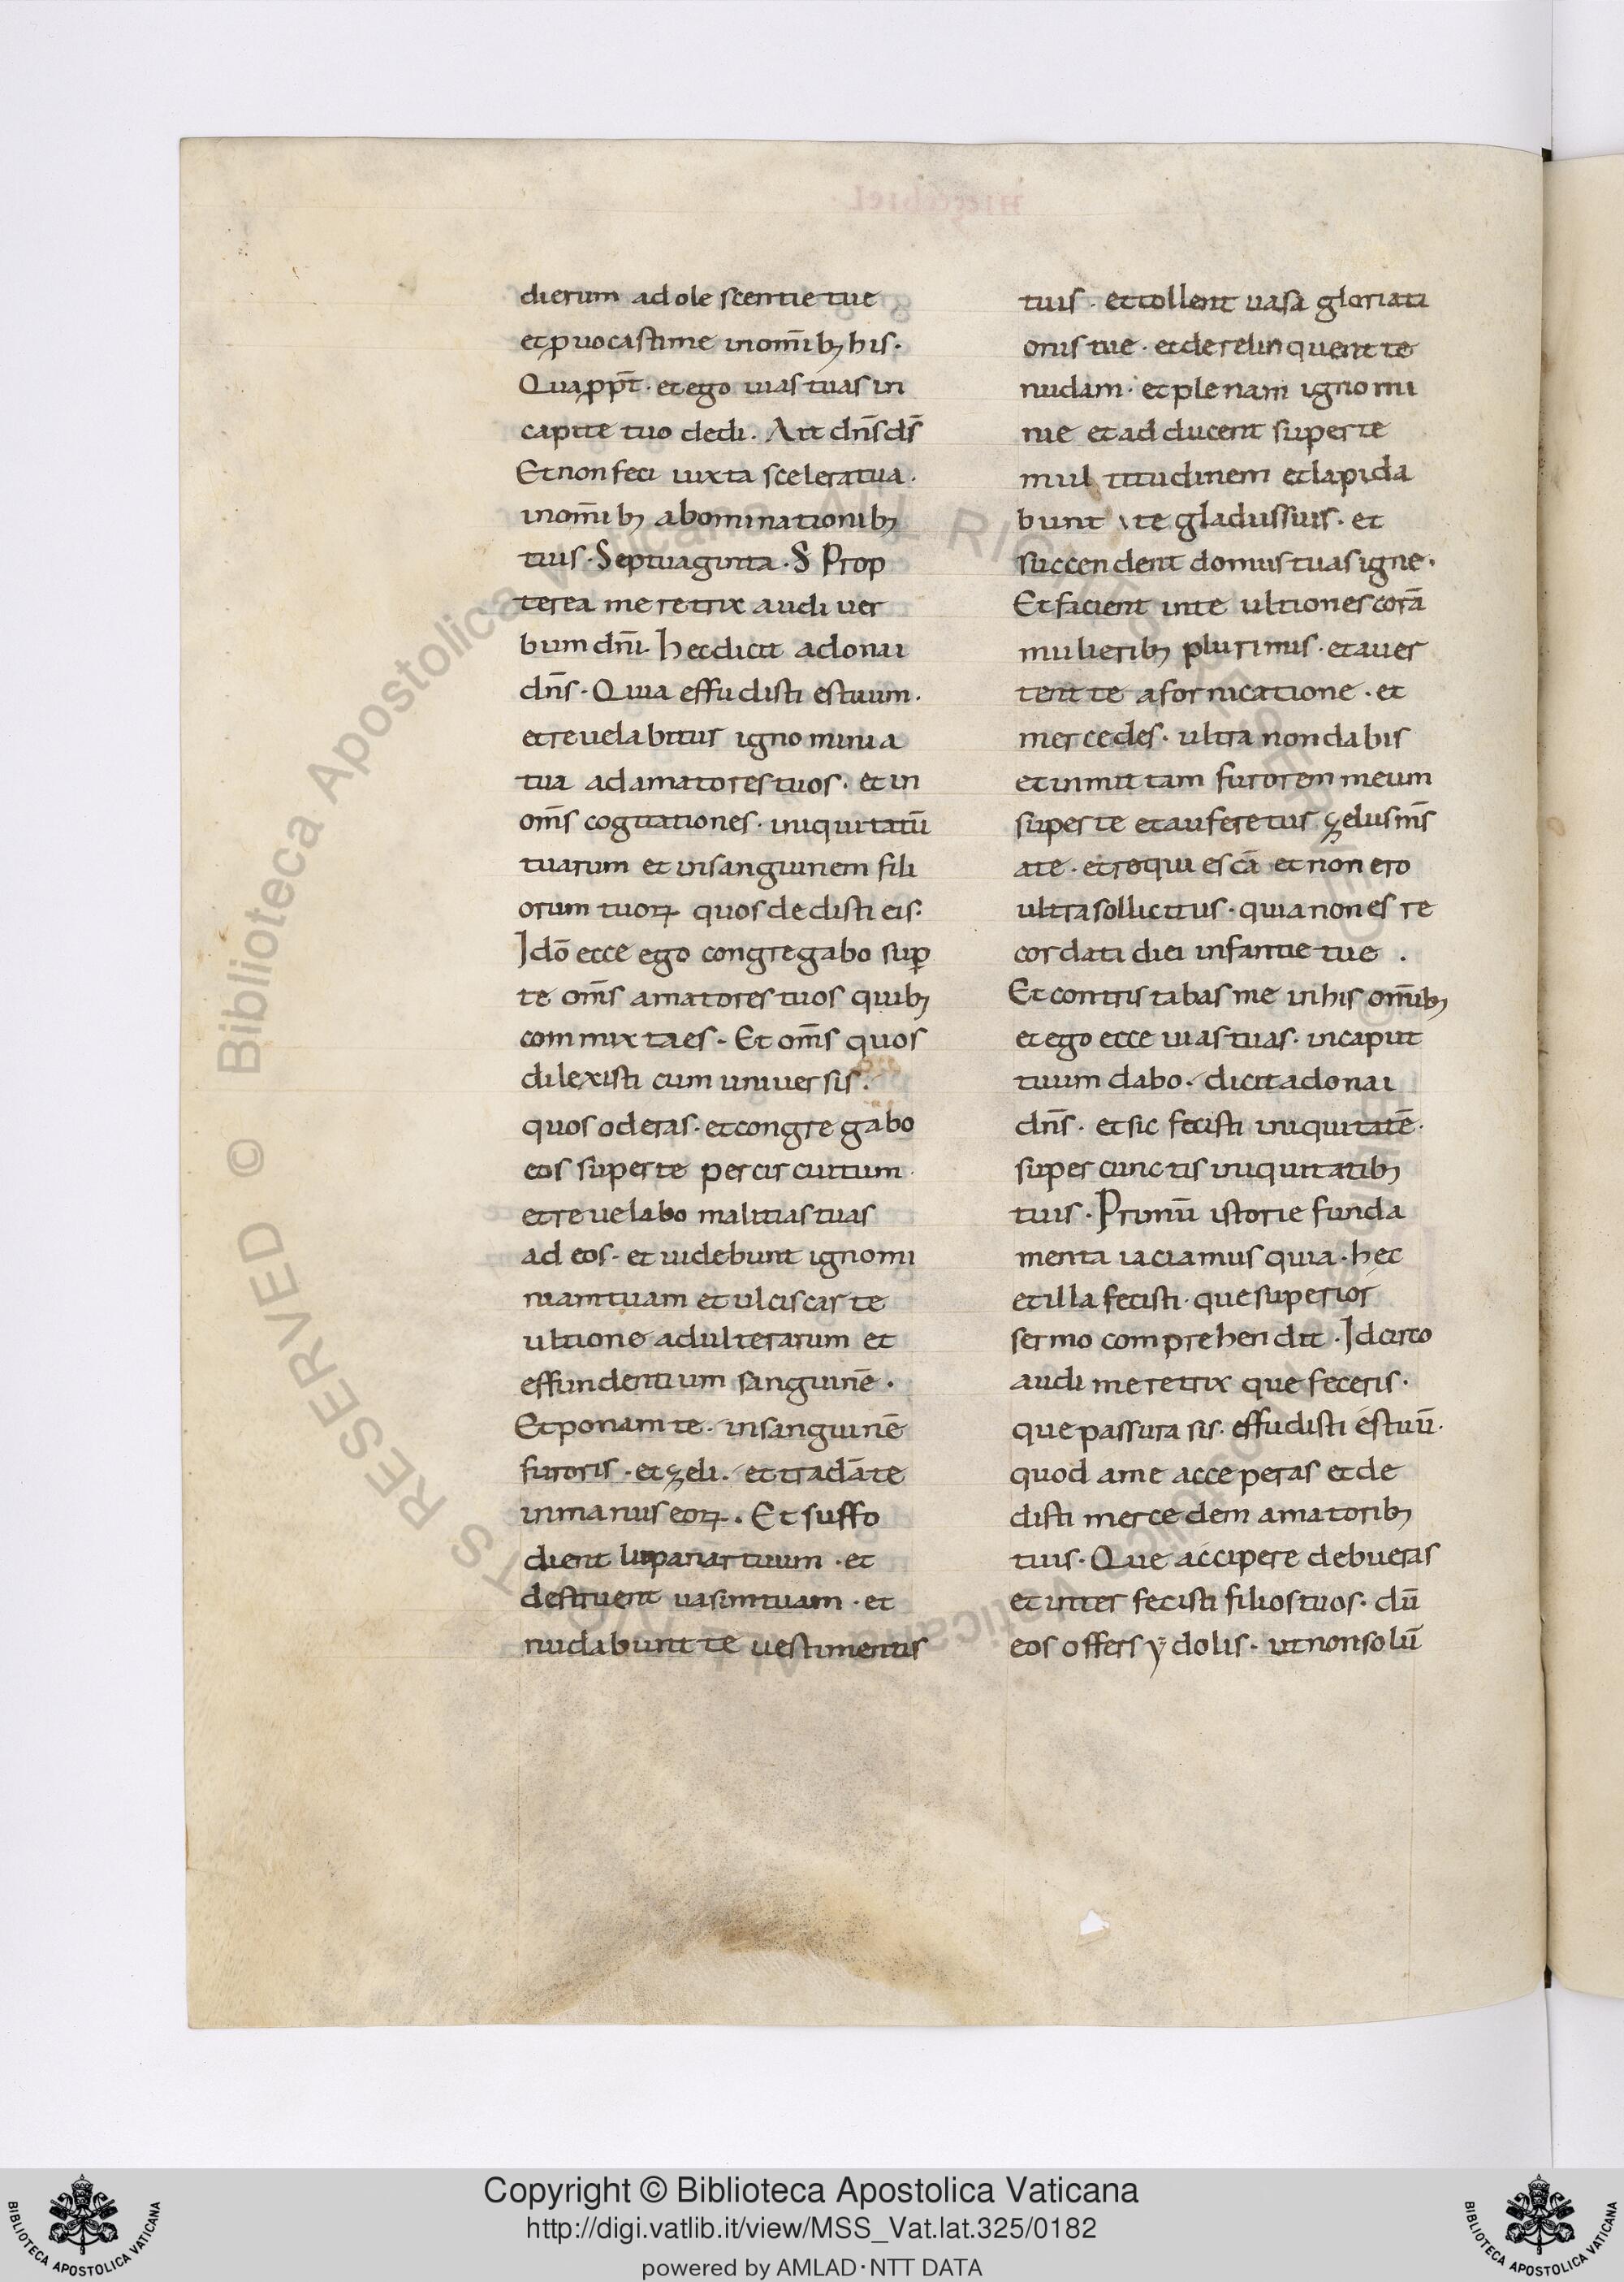 dierum adolescentie tue
et ꝓuocasti me in om̄ibꝫ his·
Quapp̄t· et ego uias tuas in
capite tuo dedi. Ait dn̄s ds̄
Et non feci iuxta scelera tua·
in om̄ibꝫ abominationibꝫ
tuis· Septuaginta· S Prop
terea meretrix audi uer
bum dn̄i. hec dicit adonai
dn̄s· Quia effudisti estuum·
et reuelabitur ignominia
tua ad amatores tuos· et in
om̄s cogitationes· iniquitatū
tuarum et in sanguinem fili
orum tuoꝝ quos dedisti eis·
Idō ecce ego congregabo sup̄
te om̄s amatores tuos quibꝫ
commixta es· Et om̄s quos
dilexisti cum uniuersis·
quos oderas· et congregabo
eos super te per circuitum·
et reuelabo malitias tuas
ad eos· et uidebunt ignomi
niam tuam et ulciscar te
ultione adulterarum et
effundentium sanguinē·
Et ponam te· in sanguinē
furoris· et ꝫeli· et tradā te
in manus eoꝝ· Et suffo
dient lupanar tuum· et
destruent uasim tuam· et
nudabunt te uestimentis
tuis· et tollent uasa gloriati
onis tue· et derelinquent te
nudam· et plenam ignomi
nie et adducent super te
multitudinem et lapida
bunt te gladiis suis· et
succendent domus tuas igne·
Et facient in te ultiones corā
mulieribꝫ plurimis· et auer
tent te a fornicatione· et
mercedes· ultra non dabis
et inmittam furorem meum
super te et auferetur ꝫelus ms̄
a te· et requiescā et non ero
ultra sollicitus· quia non es re
cordati diei infantie tue ·
Et contristabas me in his om̄ibꝫ
et ego ecce uias tuas· in caput
tuum dabo· dicit adonai
dn̄s· et sic fecisti iniquitatē·
super cunctis iniquitatibꝫ
tuis· Primū istorie funda
menta iaciamus quia· hec
et illa fecisti· que superior
sermo comprehendit· Idcirco
audi meretrix que feceris·
que passura sis· effudisti estuū·
quod a me acceperas et de
disti mercedem amatoribꝫ
tuis· Que accipere debueras
et interfecisti filios tuos· dū
eos offers ẏdolis· ut non solū
Copyright © Biblioteca Apostolica Vaticana
http://digi.vatlib.it/view/MSS_Vat.lat.325/0182
powered by AMLAD·NTT DATA